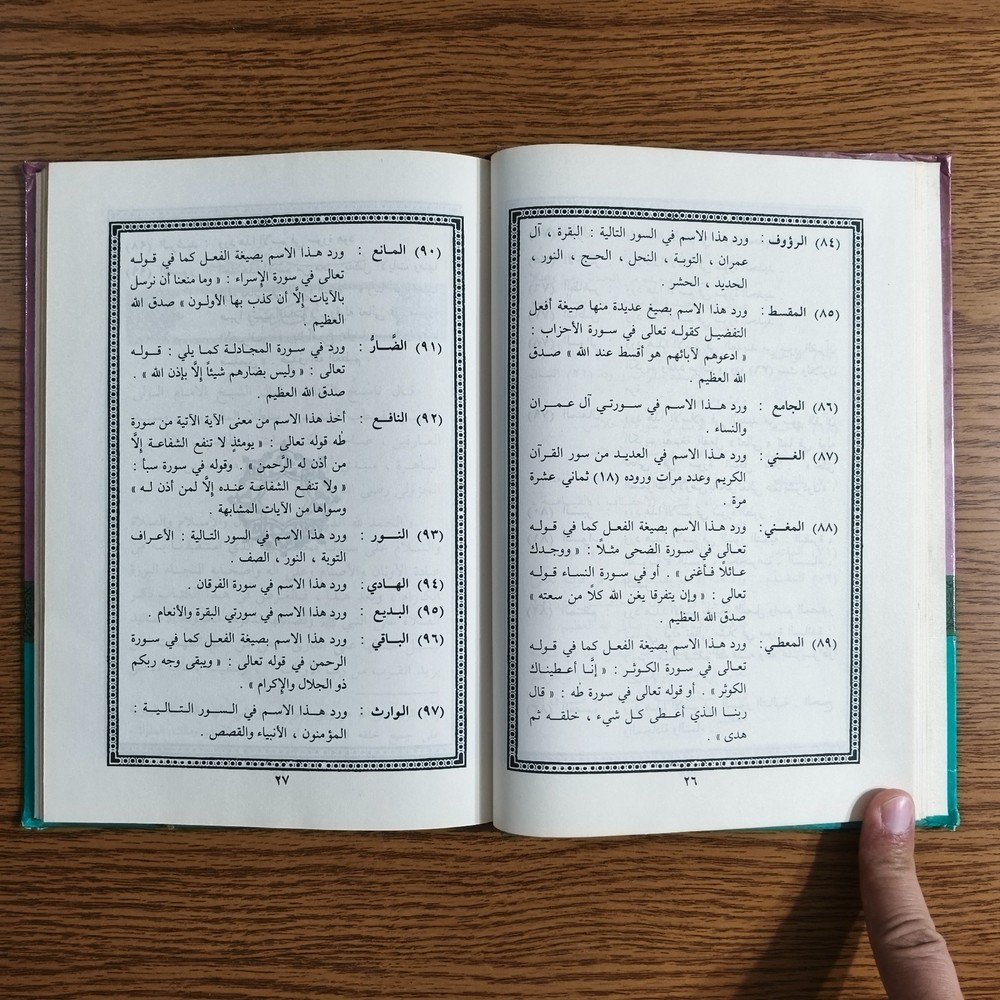 (٨٤) الرؤوف : ورد هذا الاسم في السور التالية : البقرة ، آل
عمران ، التوبـة ، النحل ، الحـج ، النور ،
الحديد ، الحشر .
(٨٥) المقسط : ورد هذا الاسم بصيغ عديدة منها صيغة أفعل
التفضيل كقولـه تعالى في سـورة الأحزاب :
« ادعوهم لآبائهم هو أقسط عند الله » صـدق
الله العظيم .
(٨٦) الجامع : ورد هــذا الاسم في سـورتـي آل عـمـران
والنساء .
(٨٧) الغــني : ورد هذا الاسم في العديـد من سور القـرآن
الكريم وعدد مرات وروده (١٨) ثماني عشرة
مرة .
(٨٨) المغـني : ورد هـذا الاسم بصيغة الفعـل كما في قولـه
تعالى في سـورة الضحى مثـلًا : « ووجـدك
عـائلًا فـأغنى » . أو في سورة النسـاء قـولـه
تعالى : « وإن يتفرقا يغن الله كلًا من سعته »
صدق الله العظيم .
(٨٩) المعطـي : ورد هذا الاسم بصيغـة الفعـل كما في قولـه
تعـالى في سـورة الكوثـر : « إنَّـا أعـطينـاك
الكوثر » . أو قوله تعالى في سورة طه : « قال
ربنـا الـذي أعـطى كـل شيء ، خلقـه ثم
هدى » .
٢٦
(٩٠) المـانع : ورد هـذا الاسم بصيغة الفعـل كما في قـولـه
تعالى في سورة الإسراء : « وما منعنا أن نرسل
بالآيات إلَّا أن كذب بها الأولـون » صدق الله
العظيم .
(٩١) الضَّـارُّ : ورد في سـورة المجادلـة كمـا يلي : قـولـه
تعالى : « وليس بضارهم شيئاً إلَّا بإذن الله » .
صدق الله العظيم .
(٩٢) النافـع : أخذ هذا الاسم من معنى الآية الآتية من سورة
طه قوله تعالى : « يومئذٍ لا تنفع الشفاعـة إلَّا
من أذن له الرَّحمن » . وقوله في سورة سبأ :
« ولا تنفـع الشفاعـة عنـده إلَّا لمن أذن لـه »
وسواها من الآيات المشابهة .
(٩٣) النـــور : ورد هذا الاسم في السور التـاليـة : الأعـراف
التوبة ، النور ، الصف .
(٩٤) الهـادي : ورد هذا الاسم في سورة الفرقان .
(٩٥) البديـع : ورد هذا الاسم في سورتي البقرة والأنعام .
(٩٦) البـاقي : ورد هذا الاسم بصيغة الفعـل كما في سـورة
الرحمن في قوله تعالى : « ويبقى وجه ربكم
ذو الجلال والإكرام » .
(٩٧) الوارث : ورد هــذا الاسـم في السـور التـالـيـة :
المؤمنون ، الأنبياء والقصص .
٢٧